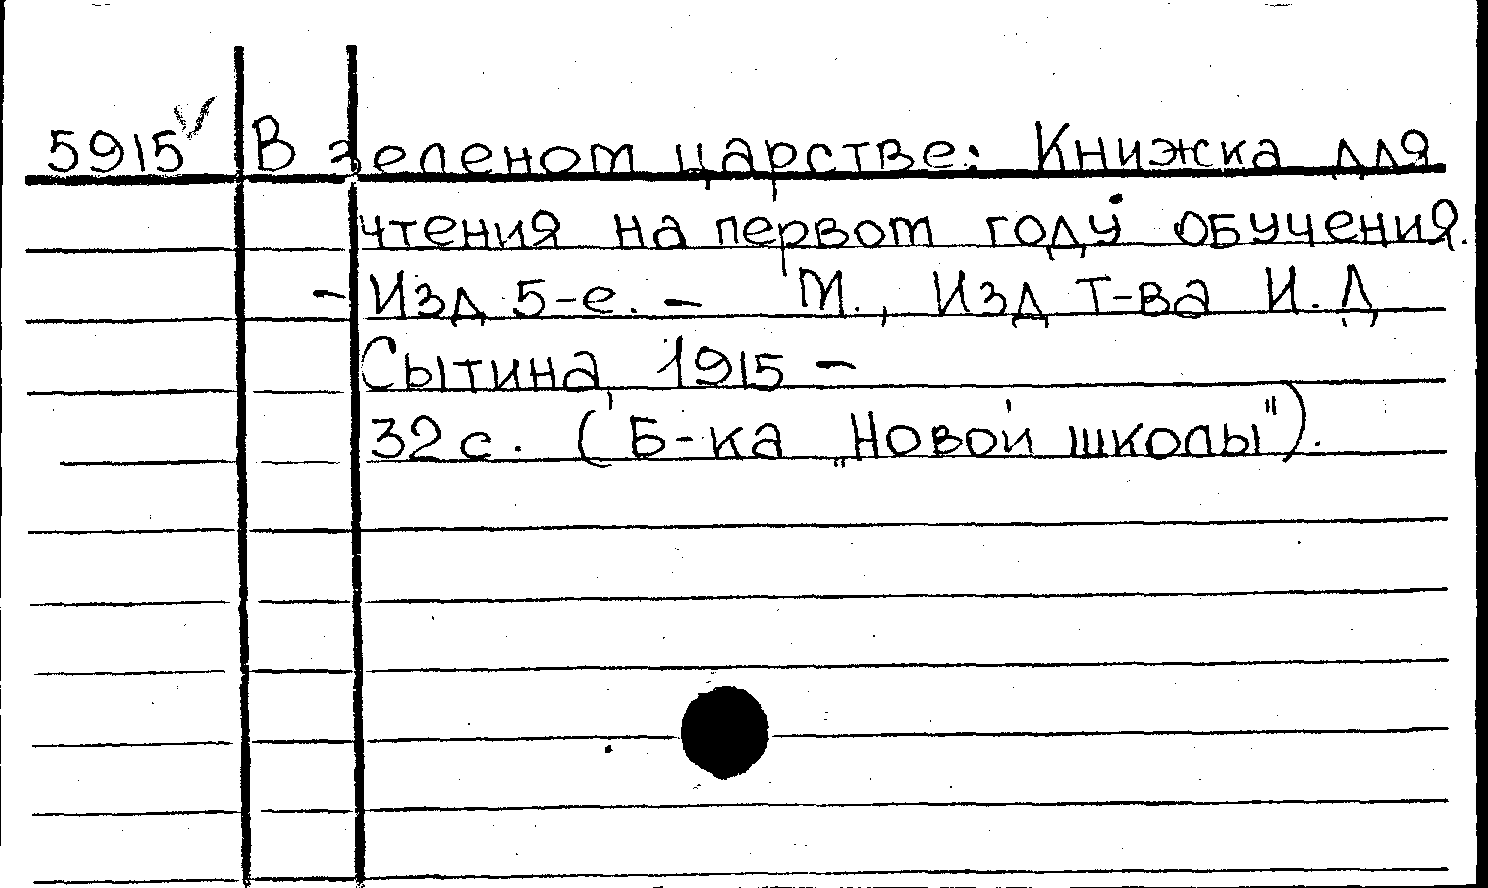 5915 В зеленом царстве: Книжка для
чтения на первом году обучения.
- Изд 5-е. - М., Изд Т-ва И. Д
Сытина, 1915 -
32 с. (Б-ка „Новой школы").